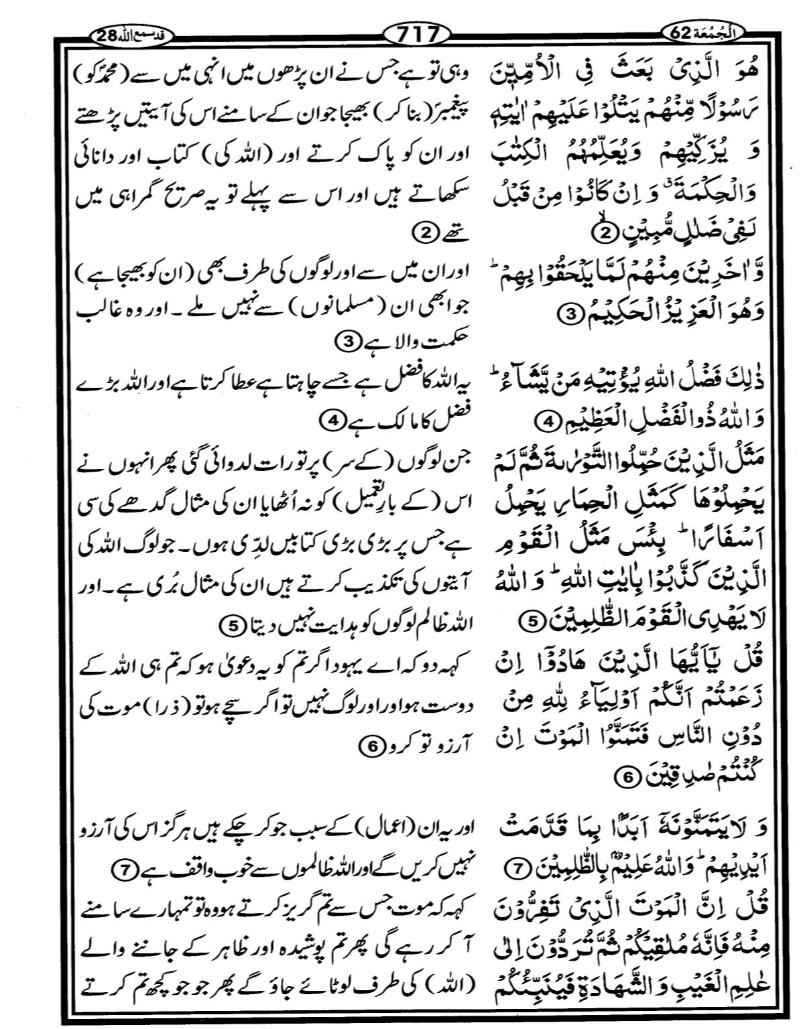 الْجُمُعَة 62
717
قد سمع الله 28
هُوَ الَّذِیْ بَعَثَ فِی الْاُمِّیّٖنَ
رَسُوْلًا مِّنْهُمْ یَتْلُوْا عَلَیْهِمْ اٰیٰتِهٖ
وَ یُزَكِّیْهِمْ وَیُعَلِّمُهُمُ الْكِتٰبَ
وَالْحِكْمَةَ ۗ وَ اِنْ كَانُوْا مِنْ قَبْلُ
لَفِیْ ضَلٰلٍ مُّبِیْنٍ ②
وَّاٰخَرِیْنَ مِنْهُمْ لَمَّا یَلْحَقُوْا بِهِمْ ؕ
وَهُوَ الْعَزِیْزُ الْحَكِیْمُ ③
ذٰلِكَ فَضْلُ اللّٰهِ یُؤْتِیْهِ مَنْ یَّشَآءُ ؕ
وَاللّٰهُ ذُو الْفَضْلِ الْعَظِیْمِ ④
مَثَلُ الَّذِیْنَ حُمِّلُوا التَّوْرٰىةَ ثُمَّ لَمْ
یَحْمِلُوْهَا كَمَثَلِ الْحِمَارِ یَحْمِلُ
اَسْفَارًا ؕ بِئْسَ مَثَلُ الْقَوْمِ
الَّذِیْنَ كَذَّبُوْا بِاٰیٰتِ اللّٰهِ ؕ وَ اللّٰهُ
لَا یَهْدِی الْقَوْمَ الظّٰلِمِیْنَ ⑤
قُلْ یٰۤاَیُّهَا الَّذِیْنَ هَادُوْۤا اِنْ
زَعَمْتُمْ اَنَّكُمْ اَوْلِیَآءُ لِلّٰهِ مِنْ
دُوْنِ النَّاسِ فَتَمَنَّوُا الْمَوْتَ اِنْ
كُنْتُمْ صٰدِقِیْنَ ⑥
وَ لَا یَتَمَنَّوْنَهٗۤ اَبَدًۢا بِمَا قَدَّمَتْ
اَیْدِیْهِمْ ؕ وَاللّٰهُ عَلِیْمٌۢ بِالظّٰلِمِیْنَ ⑦
قُلْ اِنَّ الْمَوْتَ الَّذِیْ تَفِرُّوْنَ
مِنْهُ فَاِنَّهٗ مُلٰقِیْكُمْ ثُمَّ تُرَدُّوْنَ اِلٰی
عٰلِمِ الْغَیْبِ وَ الشَّهَادَةِ فَیُنَبِّئُكُمْ
وہی تو ہے جس نے ان پڑھوں میں انہی میں سے (محمدؐ کو)
پیغمبر (بنا کر) بھیجا جو ان کے سامنے اس کی آیتیں پڑھتے
اور ان کو پاک کرتے اور (اللہ کی) کتاب اور دانائی
سکھاتے ہیں اور اس سے پہلے تو یہ صریح گمراہی میں
تھے ②
اور ان میں سے اور لوگوں کی طرف بھی (ان کو بھیجا ہے)
جو ابھی ان (مسلمانوں) سے نہیں ملے ۔ اور وہ غالب
حکمت والا ہے ③
یہ اللہ کا فضل ہے جسے چاہتا ہے عطا کرتا ہے اور اللہ بڑے
فضل کا مالک ہے ④
جن لوگوں (کے سر) پر تورات لدوائی گئی پھر انہوں نے
اس (کے بارِ تعمیل) کو نہ اُٹھایا ان کی مثال گدھے کی سی
ہے جس پر بڑی بڑی کتابیں لدّی ہوں ۔ جو لوگ اللہ کی
آیتوں کی تکذیب کرتے ہیں ان کی مثال بُری ہے ۔ اور
اللہ ظالم لوگوں کو ہدایت نہیں دیتا ⑤
کہہ دو کہ اے یہود اگر تم کو یہ دعویٰ ہو کہ تم ہی اللہ کے
دوست ہو اور اور لوگ نہیں تو اگر سچے ہو تو (ذرا) موت کی
آرزو تو کرو ⑥
اور یہ ان (اعمال) کے سبب جو کر چکے ہیں ہرگز اس کی آرزو
نہیں کریں گے اور اللہ ظالموں سے خوب واقف ہے ⑦
کہہ کہ موت جس سے تم گریز کرتے ہو وہ تو تمہارے سامنے
آ کر رہے گی پھر تم پوشیدہ اور ظاہر کے جاننے والے
(اللہ) کی طرف لوٹائے جاؤ گے پھر جو جو کچھ تم کرتے